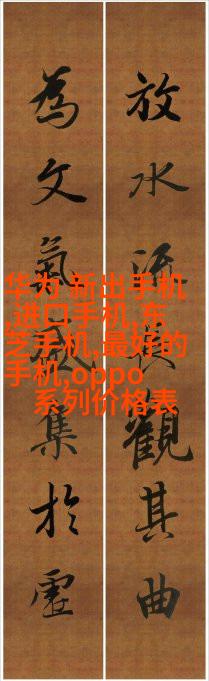 放水流觀其曲
為文氣集於虛
华为 新出手机
,进口手机,东
芝手机,最好的
手机,oppo
系列价格表